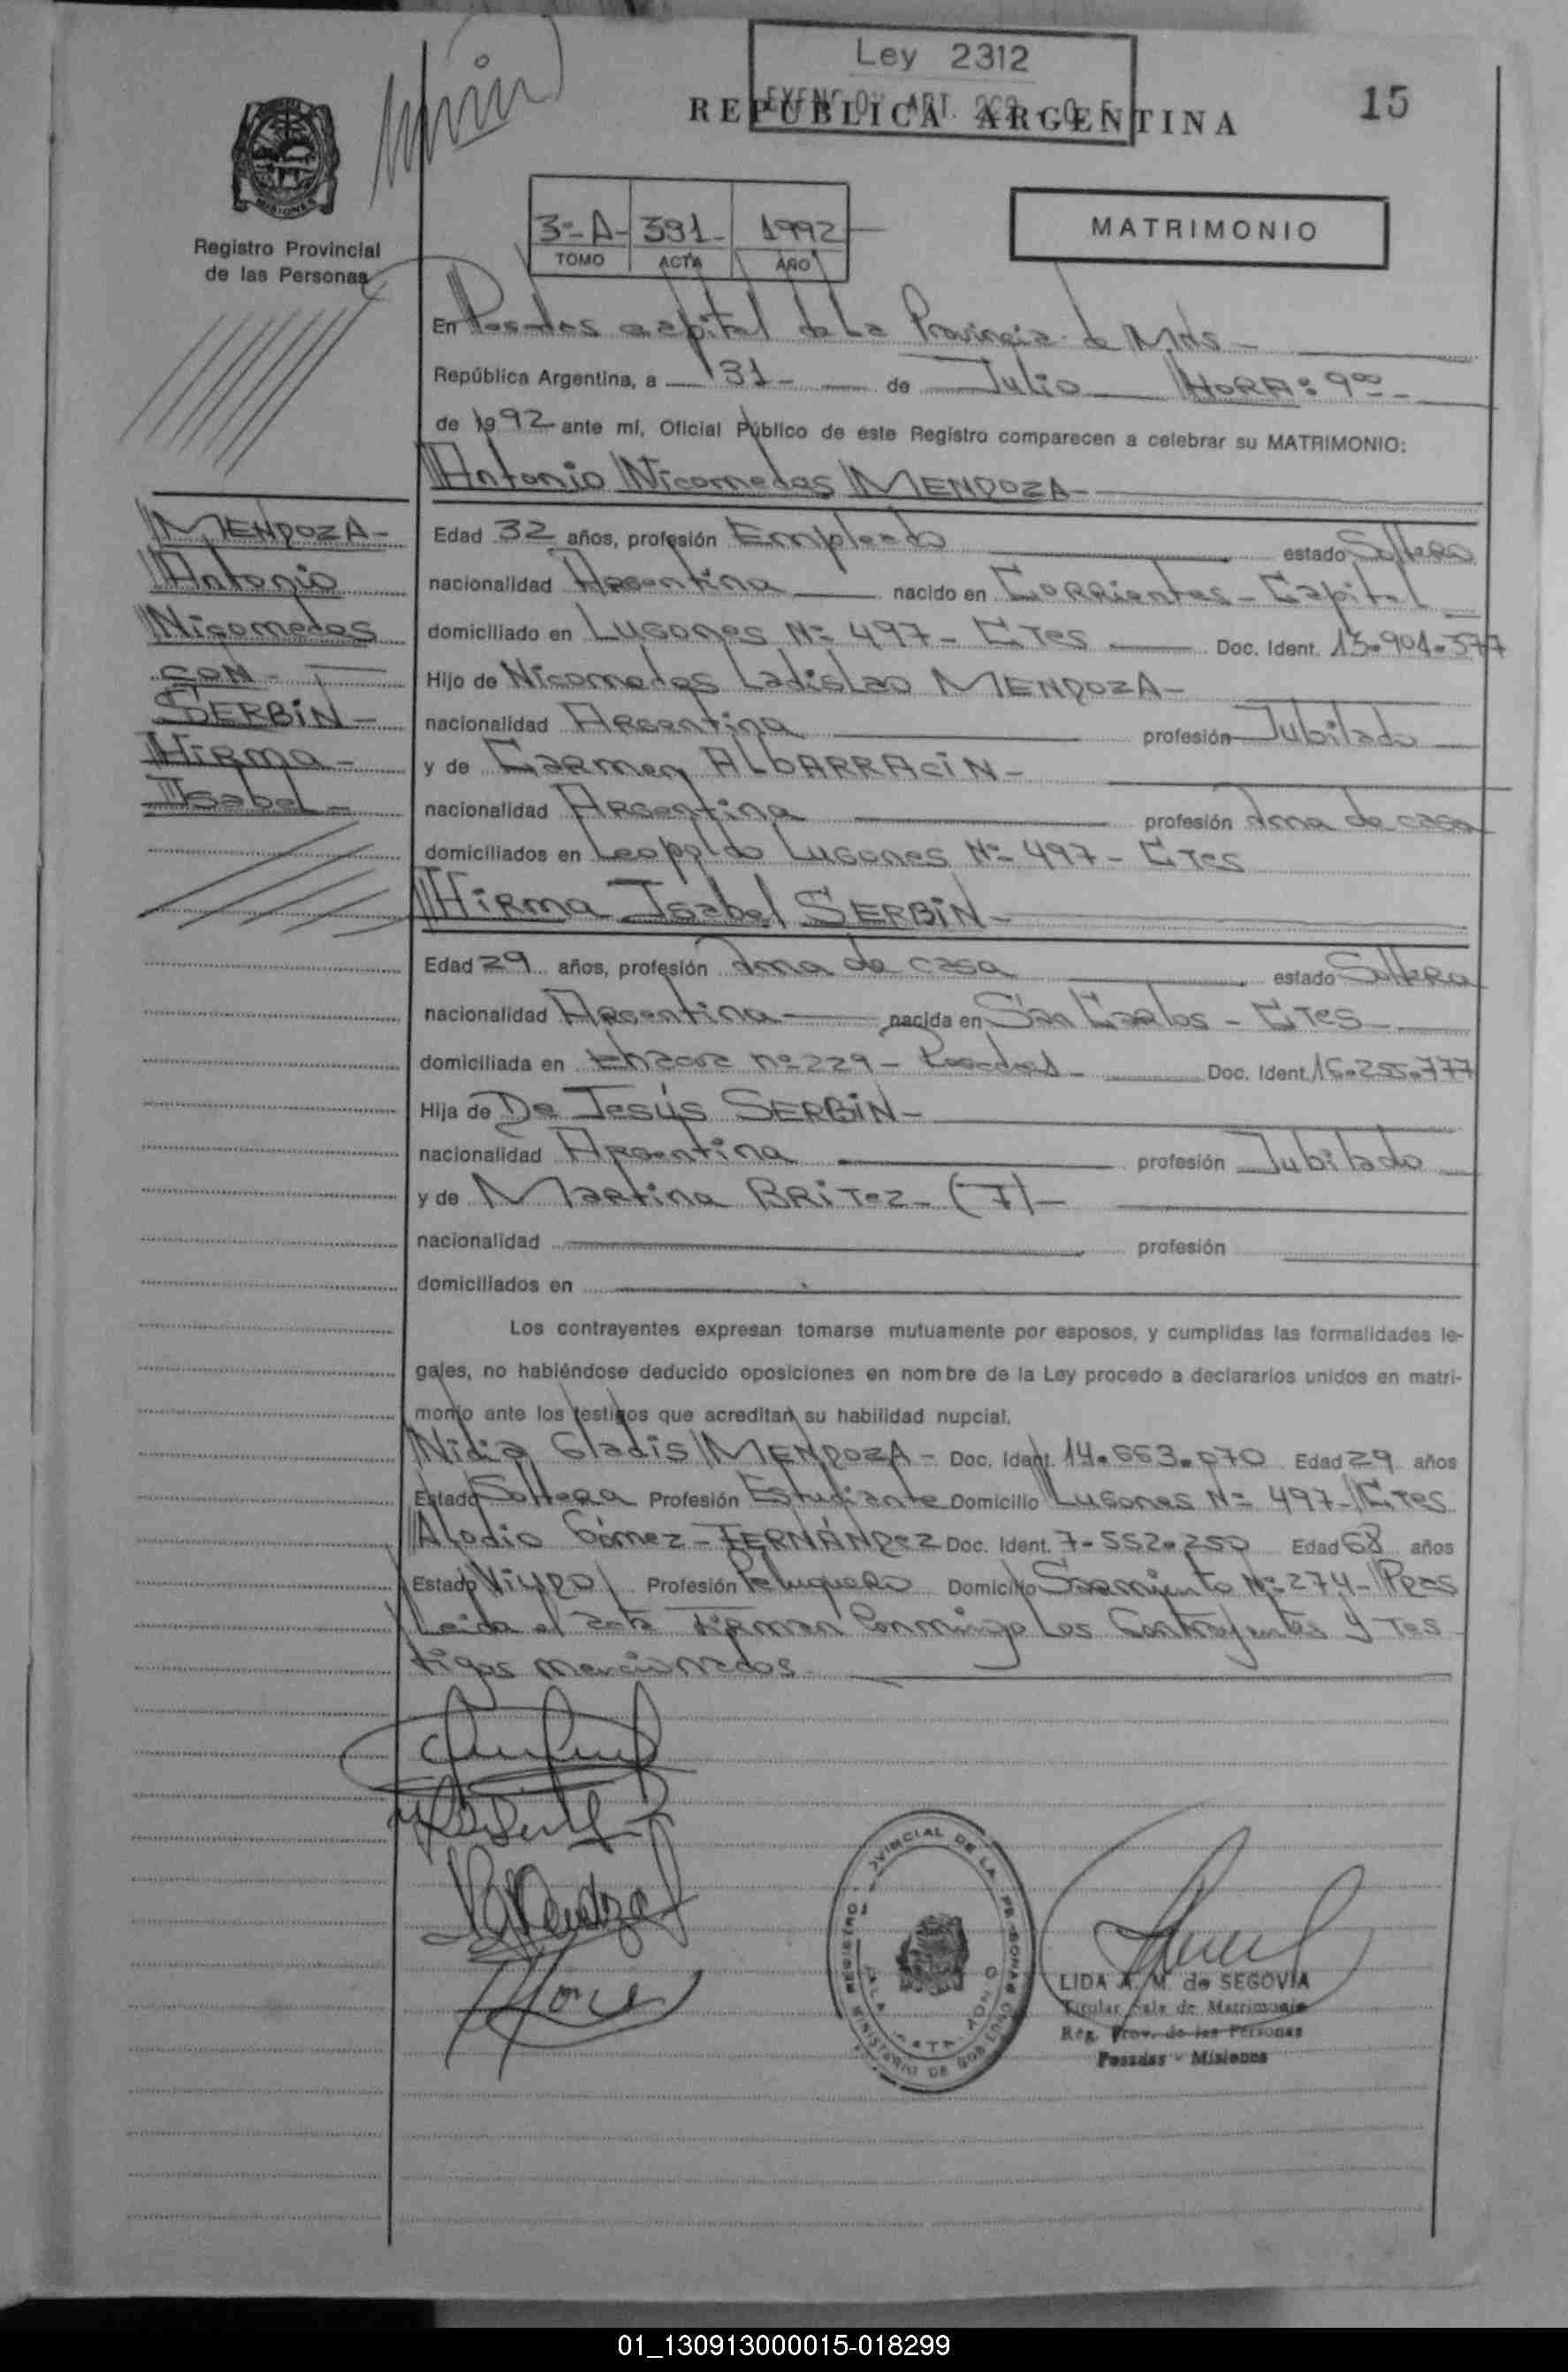 Ley 2312
REPUBLICA ARGENTINA
15
MISIONES
Registro Provincial
de las Personas
3º-A- 391- 1992
TOMO ACTA AÑO
MATRIMONIO
En Posadas capital de La Provincia de Mnes-
República Argentina, a 31- de Julio HORA: 9⁰⁰-
de 1992 ante mí, Oficial Público de este Registro comparecen a celebrar su MATRIMONIO:
Antonio Nicomedes MENDOZA-
MENDOZA-
Antonio
Nicomedes
CON-
SERBIN-
Hirma-
Isabel-
Edad 32 años, profesión Empleado estado Soltero
nacionalidad Argentina nacido en Corrientes - Capital
domiciliado en Lugones Nº 497- CTes Doc. Ident. 13.901.577
Hijo de Nicomedes Ladislao MENDOZA-
nacionalidad Argentina profesión Jubilado
y de Carmen ALbARRACiN-
nacionalidad Argentina profesión Ama de casa
domiciliados en Leopoldo Lugones Nº 497- CTes
Hirma Isabel SERBiN-
Edad 29 años, profesión Ama de casa estado Soltera
nacionalidad Argentina nacida en San Carlos - CTes-
domiciliada en nº 229- Posadas- Doc. Ident. 16.255.777
Hija de De Jesús SERBiN-
nacionalidad Argentina profesión Jubilado
y de Martina BRiTez- (7)-
nacionalidad profesión
domiciliados en
Los contrayentes expresan tomarse mutuamente por esposos, y cumplidas las formalidades le-
gales, no habiéndose deducido oposiciones en nombre de la Ley procedo a declararlos unidos en matri-
monio ante los testigos que acreditan su habilidad nupcial.
Nidia Gladis MENDOZA- Doc. Ident. 14.663.070 Edad 29 años
Estado Soltera Profesión Estudiante Domicilio Lugones Nº 497- CTes
Aladio Gómez-FERNÁNDez Doc. Ident. 7-552.250 Edad 68 años
Estado Viudo Profesión Peluquero Domicilio Sarmiento Nº 274- Pdas
Leida el acta Firman Conmigo Los Contrayentes y Tes-
tigos mencionados-
LIDA A. M. de SEGOVIA
Titular Sala de Matrimonio
Reg. Prov. de las Personas
Posadas - Misiones
01_130913000015-018299